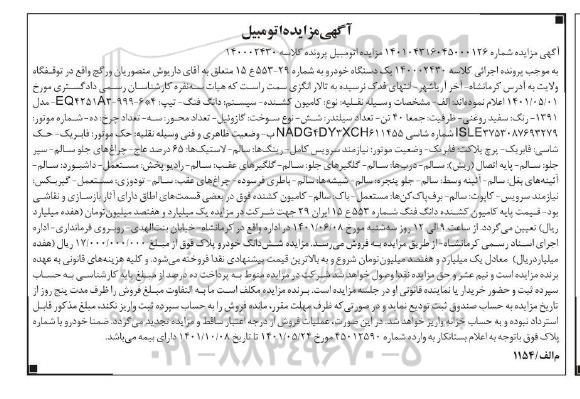 آگهی مزایده اتومبیل
آگهی مزایده شماره ۱۴۰۱۰۴۳۱۶۰۴۵۰۰۰۱۲۶ مزایده اتومبیل پرونده کلاسه ۱۴۰۰۰۲۴۳۰
به موجب پرونده اجرائی کلاسه ۱۴۰۰۰۲۴۳۰ یک دستگاه خودرو به شماره ۲۹-۵۵۳ع ۱۵ متعلق به آقای داریوش منصوریان ورگچ واقع در توقفگاه
ولایت به آدرس کرمانشاه- آخر آریاشهر- انتهای فدک نرسیده به تالار انگزی سمت راست که هیات سه‌نفره کارشناسان رسمی دادگستری مورخ
۱۴۰۱/۰۵/۰۱ اعلام نموده‌اند: الف- مشخصات وسیله نقلیه: نوع: کامیون کشنده- سیستم: دانگ فنگ- تیپ: EQ۴۲۵۱A۳-۹۹۹-۶*۴- مدل
۱۳۹۱- رنگ: سفید روغنی- ظرفیت: جمعا ۴۰ تن- تعداد سیلندر: شش- نوع سوخت: گازوئیل- تعداد محور: سه- تعداد چرخ: ده- شماره موتور:
ISLE۳۷۵۳۰۸۷۶۹۳۲۷۹ شماره شاسی NADG۴DY۳XCH۶۱۱۴۵۵ ب- وضعیت ظاهری و فنی وسیله نقلیه: حک موتور: فابریک- حک
شاسی: فابریک- پرچ پلاک: فابریک- وضعیت موتور: نیازمند سرویس کامل- رینگ‌ها: سالم- لاستیک‌ها: ۶۵ درصد عاج- چراغ‌های جلو: سالم- سپر
جلو: سالم- پایه اتصال (ریش): سالم- درب‌ها: سالم- گلگیرهای جلو: سالم- گلگیرهای عقب: سالم- رادیو پخش: مستعمل- داشبورد: سالم-
آئینه‌های بغل: سالم- آئینه وسط: سالم- جلو پنجره: سالم- شیشه‌ها: سالم- باطری فرسوده- چراغ‌های عقب: سالم- تودوزی: مستعمل- گیربکس:
نیازمند سرویس- کاپوت: سالم- برف‌پاک‌کن‌ها: مستعمل- باک: سالم- کامیون کشنده فوق در بعضی قسمت‌های اطاق دارای آثار بازسازی و نقاشی
بود- قیمت پایه کامیون کشنده دانگ فنگ شماره ۵۵۳ع ۱۵ ایران ۲۹ جهت شرکت در مزایده یک میلیارد و هفتصد میلیون تومان (هفده میلیارد
ریال) تعیین می‌گردد. از ساعت ۹ الی ۱۲ روز سه‌شنبه مورخ ۱۴۰۱/۰۶/۰۸ در اداره واقع در کرمانشاه- خیابان بنت‌الهدی- روبروی فرمانداری- اداره
اجرای اسناد رسمی کرمانشاه- از طریق مزایده به فروش می‌رسد. مزایده شش‌دانگ خودرو پلاک فوق از مبلغ ۱۷/۰۰۰/۰۰۰/۰۰۰ ریال (هفده
میلیارد ریال) معادل یک میلیارد و هفتصد میلیون تومان شروع و به بالاترین قیمت پیشنهادی نقدا فروخته می‌شود. و کلیه هزینه‌های قانونی به عهده
برنده مزایده است و نیم عشر و حق مزایده نقدا وصول خواهد شد شرکت در مزایده منوط به پرداخت ده درصد از مبلغ پایه کارشناسی به حساب
سپرده ثبت و حضور خریدار یا نماینده قانونی او در جلسه مزایده است. برنده مزایده مکلف است ما به التفاوت مبلغ فروش را ظرف مدت پنج روز از
تاریخ مزایده به حساب صندوق ثبت تودیع نماید و در صورتی که ظرف مهلت مقرر، مانده فروش را به حساب سپرده ثبت واریز نکند، مبلغ مذکور قابل
استرداد نبوده و به حساب خزانه واریز خواهد شد. در این صورت، عملیات فروش از درجه اعتبار ساقط و مزایده تجدید می‌گردد. ضمنا خودرو با شماره
پلاک فوق باتوجه به اعلام بستانکار به وارده شماره ۴۵۰۱۲۵۹۰ مورخ ۱۴۰۱/۰۵/۲۴ تا تاریخ ۱۴۰۱/۱۰/۰۸ دارای بیمه می‌باشد.
م الف/۱۱۵۴
۰۲۱-۸۸۳۴۹۶۷۰-۵